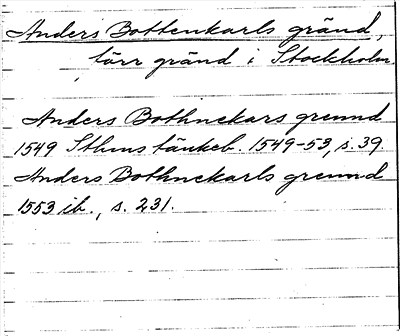 Anders Bottenkarls gränd,
törr gränd i Stockholm.
Anders Bothnekars grennd
1549 Sthms tänkeb. 1549-53, s. 39.
Anders Bothnekarls grennd
1553 ib., s. 231.